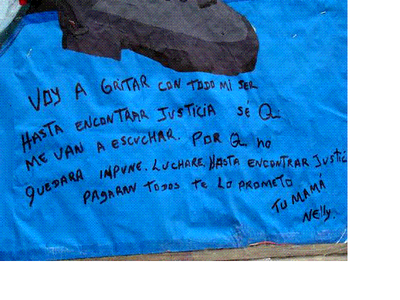 VOY A GRITAR CON TODO MI SER
HASTA ENCONTRAR JUSTICIA SÉ Q
ME VAN A ESCUCHAR. POR Q NO
QUEDARA IMPUNE. LUCHARE HASTA ENCONTRAR JUSTIC
PAGARAN TODOS TE LO PROMETO
TU MAMÁ
Nelly.